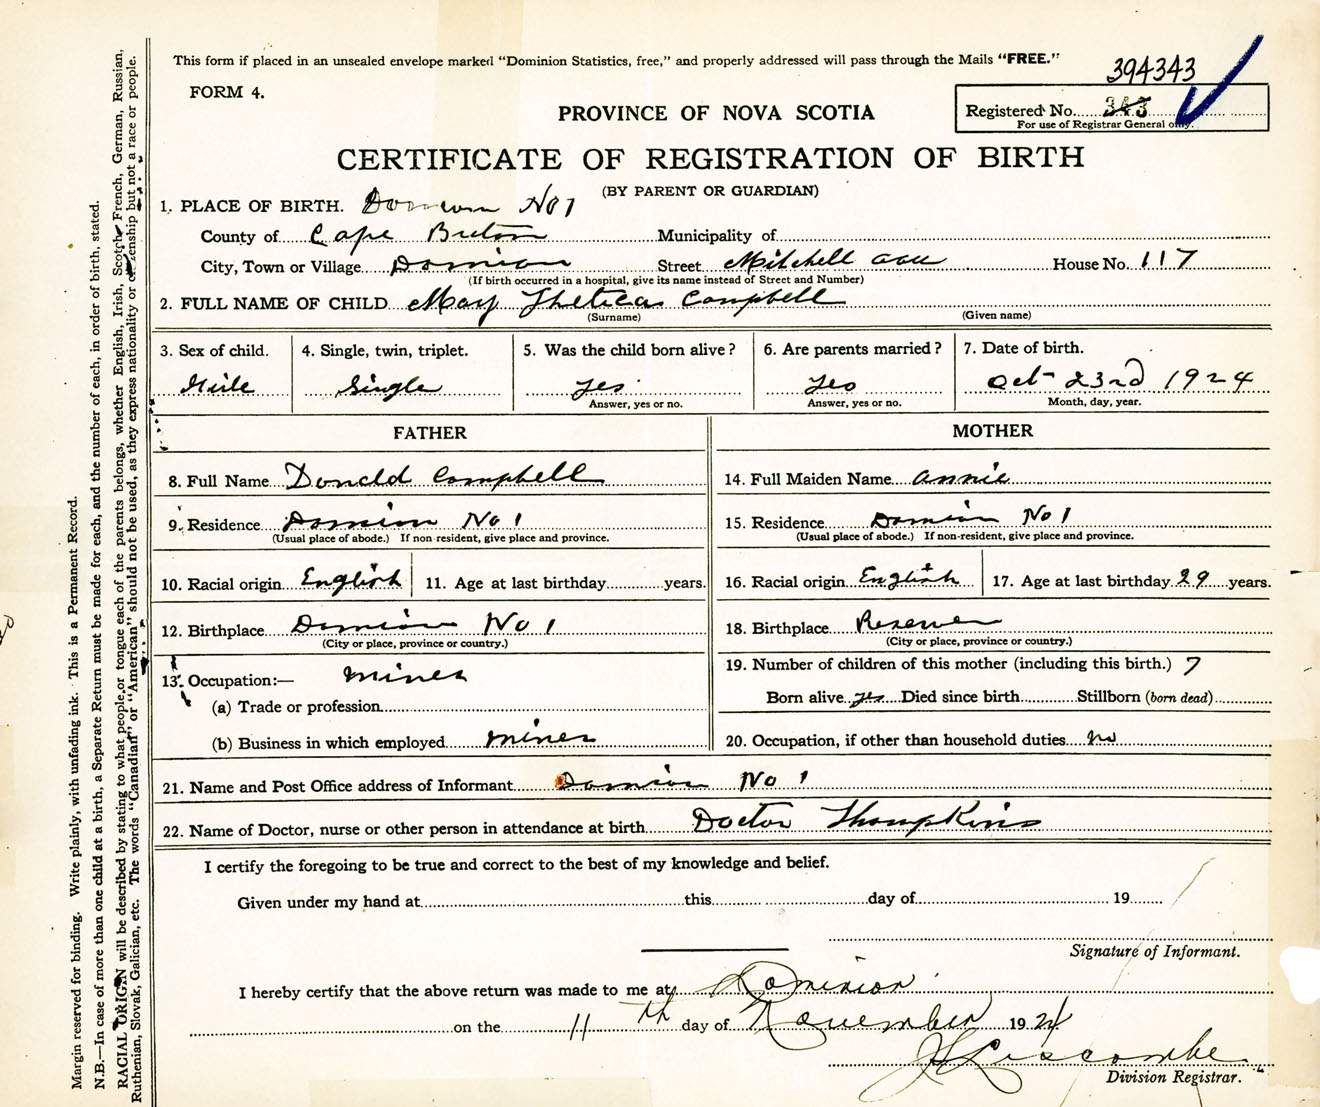 This form if placed in an unsealed envelope marked “Dominion Statistics, free,” and properly addressed will pass through the Mails “FREE.”
394343
FORM 4.
PROVINCE OF NOVA SCOTIA
Registered No. 343
For use of Registrar General only.
CERTIFICATE OF REGISTRATION OF BIRTH
(BY PARENT OR GUARDIAN)
1. PLACE OF BIRTH. Dominion No 1
County of Cape Breton Municipality of
City, Town or Village Dominion Street Mitchell ave House No. 117
(If birth occurred in a hospital, give its name instead of Street and Number)
2. FULL NAME OF CHILD Mary Campbell
(Surname) (Given name)
3. Sex of child. 4. Single, twin, triplet. 5. Was the child born alive? 6. Are parents married? 7. Date of birth.
Single yes yes Oct 23rd 1924
Answer, yes or no. Answer, yes or no. Month, day, year.
FATHER MOTHER
8. Full Name Donald Campbell 14. Full Maiden Name annie
9. Residence Dominion No 1 15. Residence Dominion No 1
(Usual place of abode.) If non-resident, give place and province. (Usual place of abode.) If non-resident, give place and province.
10. Racial origin English 11. Age at last birthday years. 16. Racial origin English 17. Age at last birthday 29 years.
12. Birthplace Dominion No 1 18. Birthplace Reserve
(City or place, province or country.) (City or place, province or country.)
13. Occupation:— miner 19. Number of children of this mother (including this birth.) 7
(a) Trade or profession Born alive yes Died since birth Stillborn (born dead)
(b) Business in which employed miner 20. Occupation, if other than household duties no
21. Name and Post Office address of Informant Dominion No 1
22. Name of Doctor, nurse or other person in attendance at birth Doctor Thompkins
I certify the foregoing to be true and correct to the best of my knowledge and belief.
Given under my hand at this day of 19
Signature of Informant.
I hereby certify that the above return was made to me at Dominion
on the 11th day of November 1924
Liscombe
Division Registrar.
Margin reserved for binding. Write plainly, with unfading ink. This is a Permanent Record.
N.B.—In case of more than one child at a birth, a Separate Return must be made for each, and the number of each, in order of birth, stated.
RACIAL ORIGIN will be described by stating to what people, or tongue each of the parents belongs, whether English, Irish, Scotch, French, German, Russian,
Ruthenian, Slovak, Galician, etc. The words “Canadian” or “American” should not be used, as they express nationality or citizenship but not a race or people.